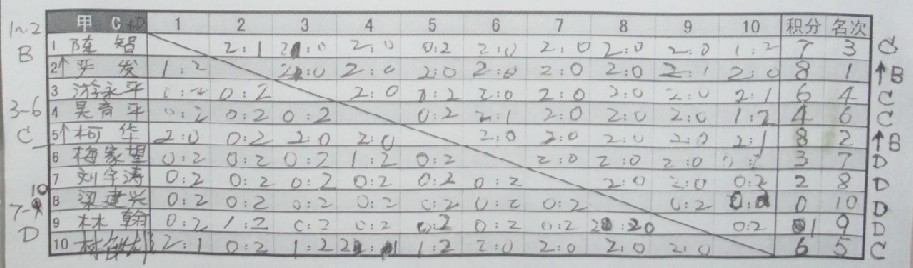 甲 C 1 2 3 4 5 6 7 8 9 10 积分 名次
1~2 1 陈 智 2:1 2:0 2:0 0:2 2:0 2:0 2:0 2:0 1:2 7 3 C
B 2↑ 发 1:2 2:0 2:0 2:0 2:0 2:0 2:0 2:1 2:0 8 1 ↑B
3 游永平 0:2 0:2 2:0 2:0 2:0 2:0 2:0 2:1 6 4 C
3-6 4 吴育平 0:2 0:2 0:2 0:2 2:1 2:0 2:0 2:0 1:2 4 6 C
C 5↑ 柯 华 2:0 0:2 2:0 2:0 2:0 2:0 2:0 2:0 2:1 8 2 ↑B
6 梅家望 0:2 0:2 0:2 1:2 0:2 2:0 2:0 2:0 3 7 D
7 刘 涛 0:2 0:2 0:2 0:2 0:2 0:2 2:0 2:0 0:2 2 8 D
7- 8 梁建兴 0:2 0:2 0:2 0:2 0:2 0:2 0:2 0:2 0 10 D
D 9 林 翰 0:2 1:2 0:2 0:2 0:2 0:2 0:2 2:0 0:2 1 9 D
10 2:1 0:2 1:2 1:2 2:0 2:0 2:0 2:0 6 5 C